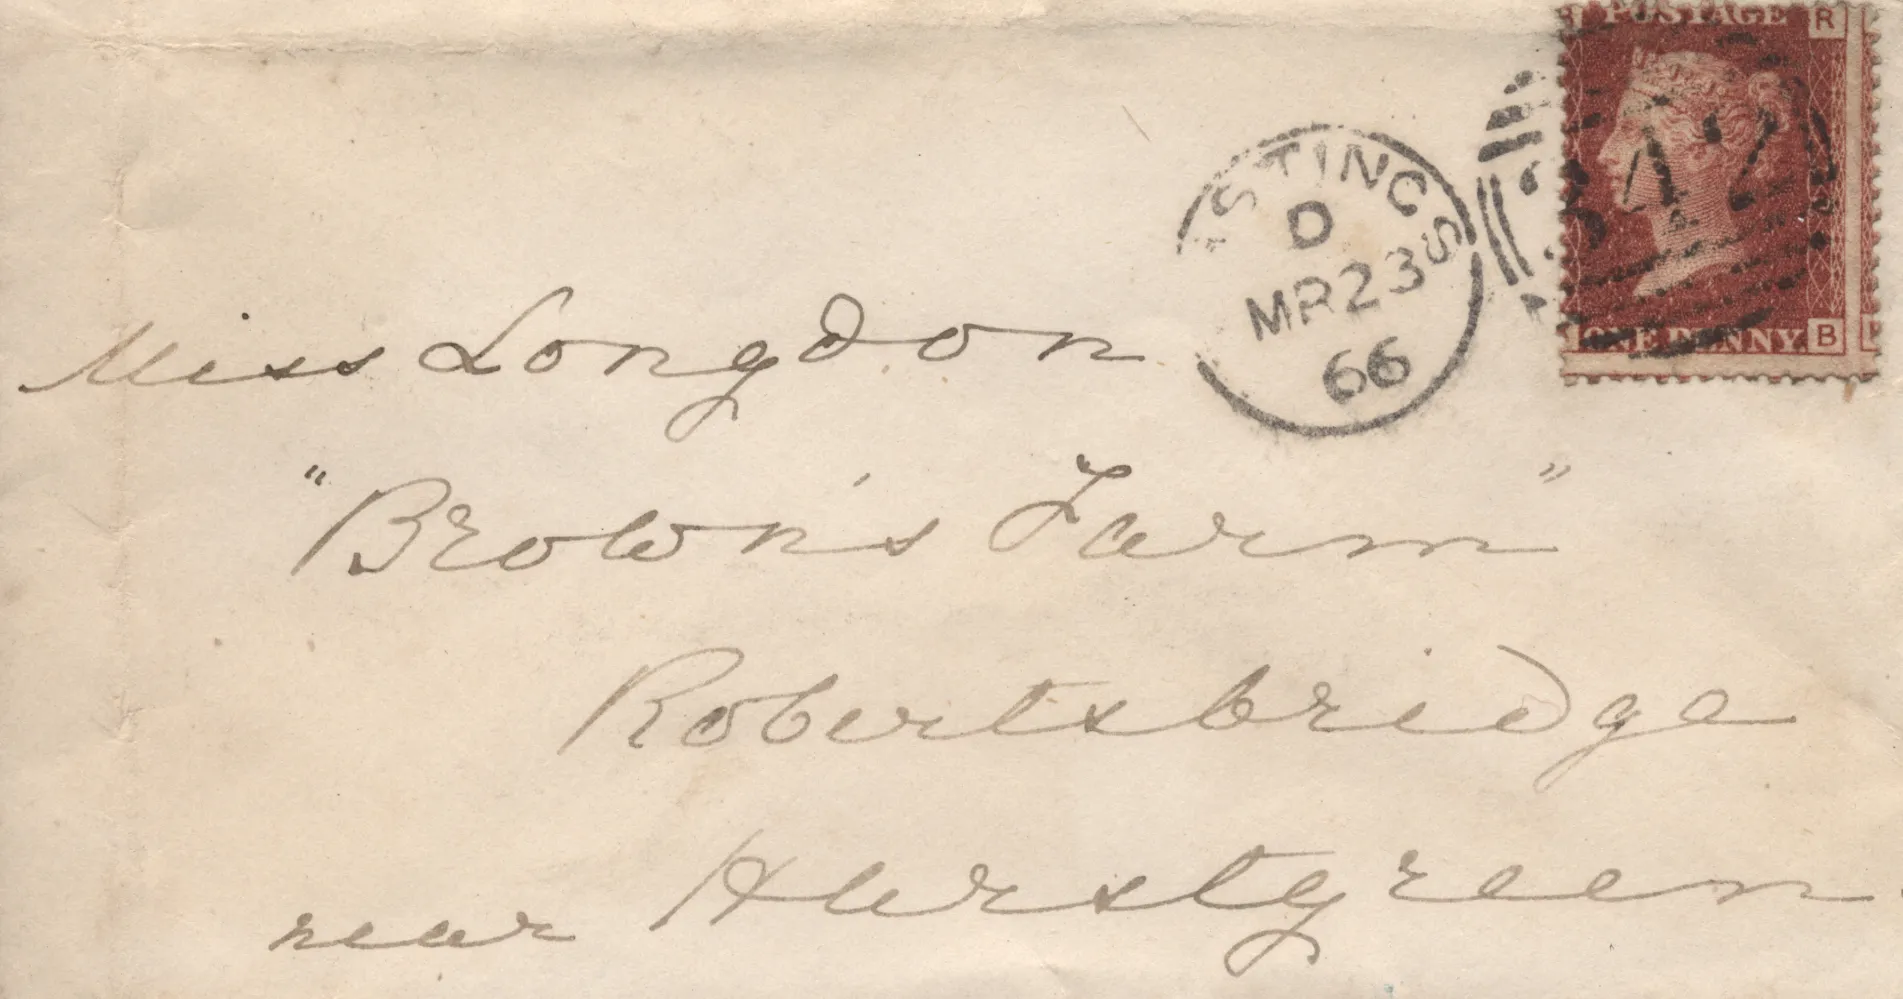 POSTAGE R
342
STINGS
D
MR 23
66
ONE PENNY. B
Miss Longdon
"Brown's Farm"
Robertsbridge
near Hurstgreen